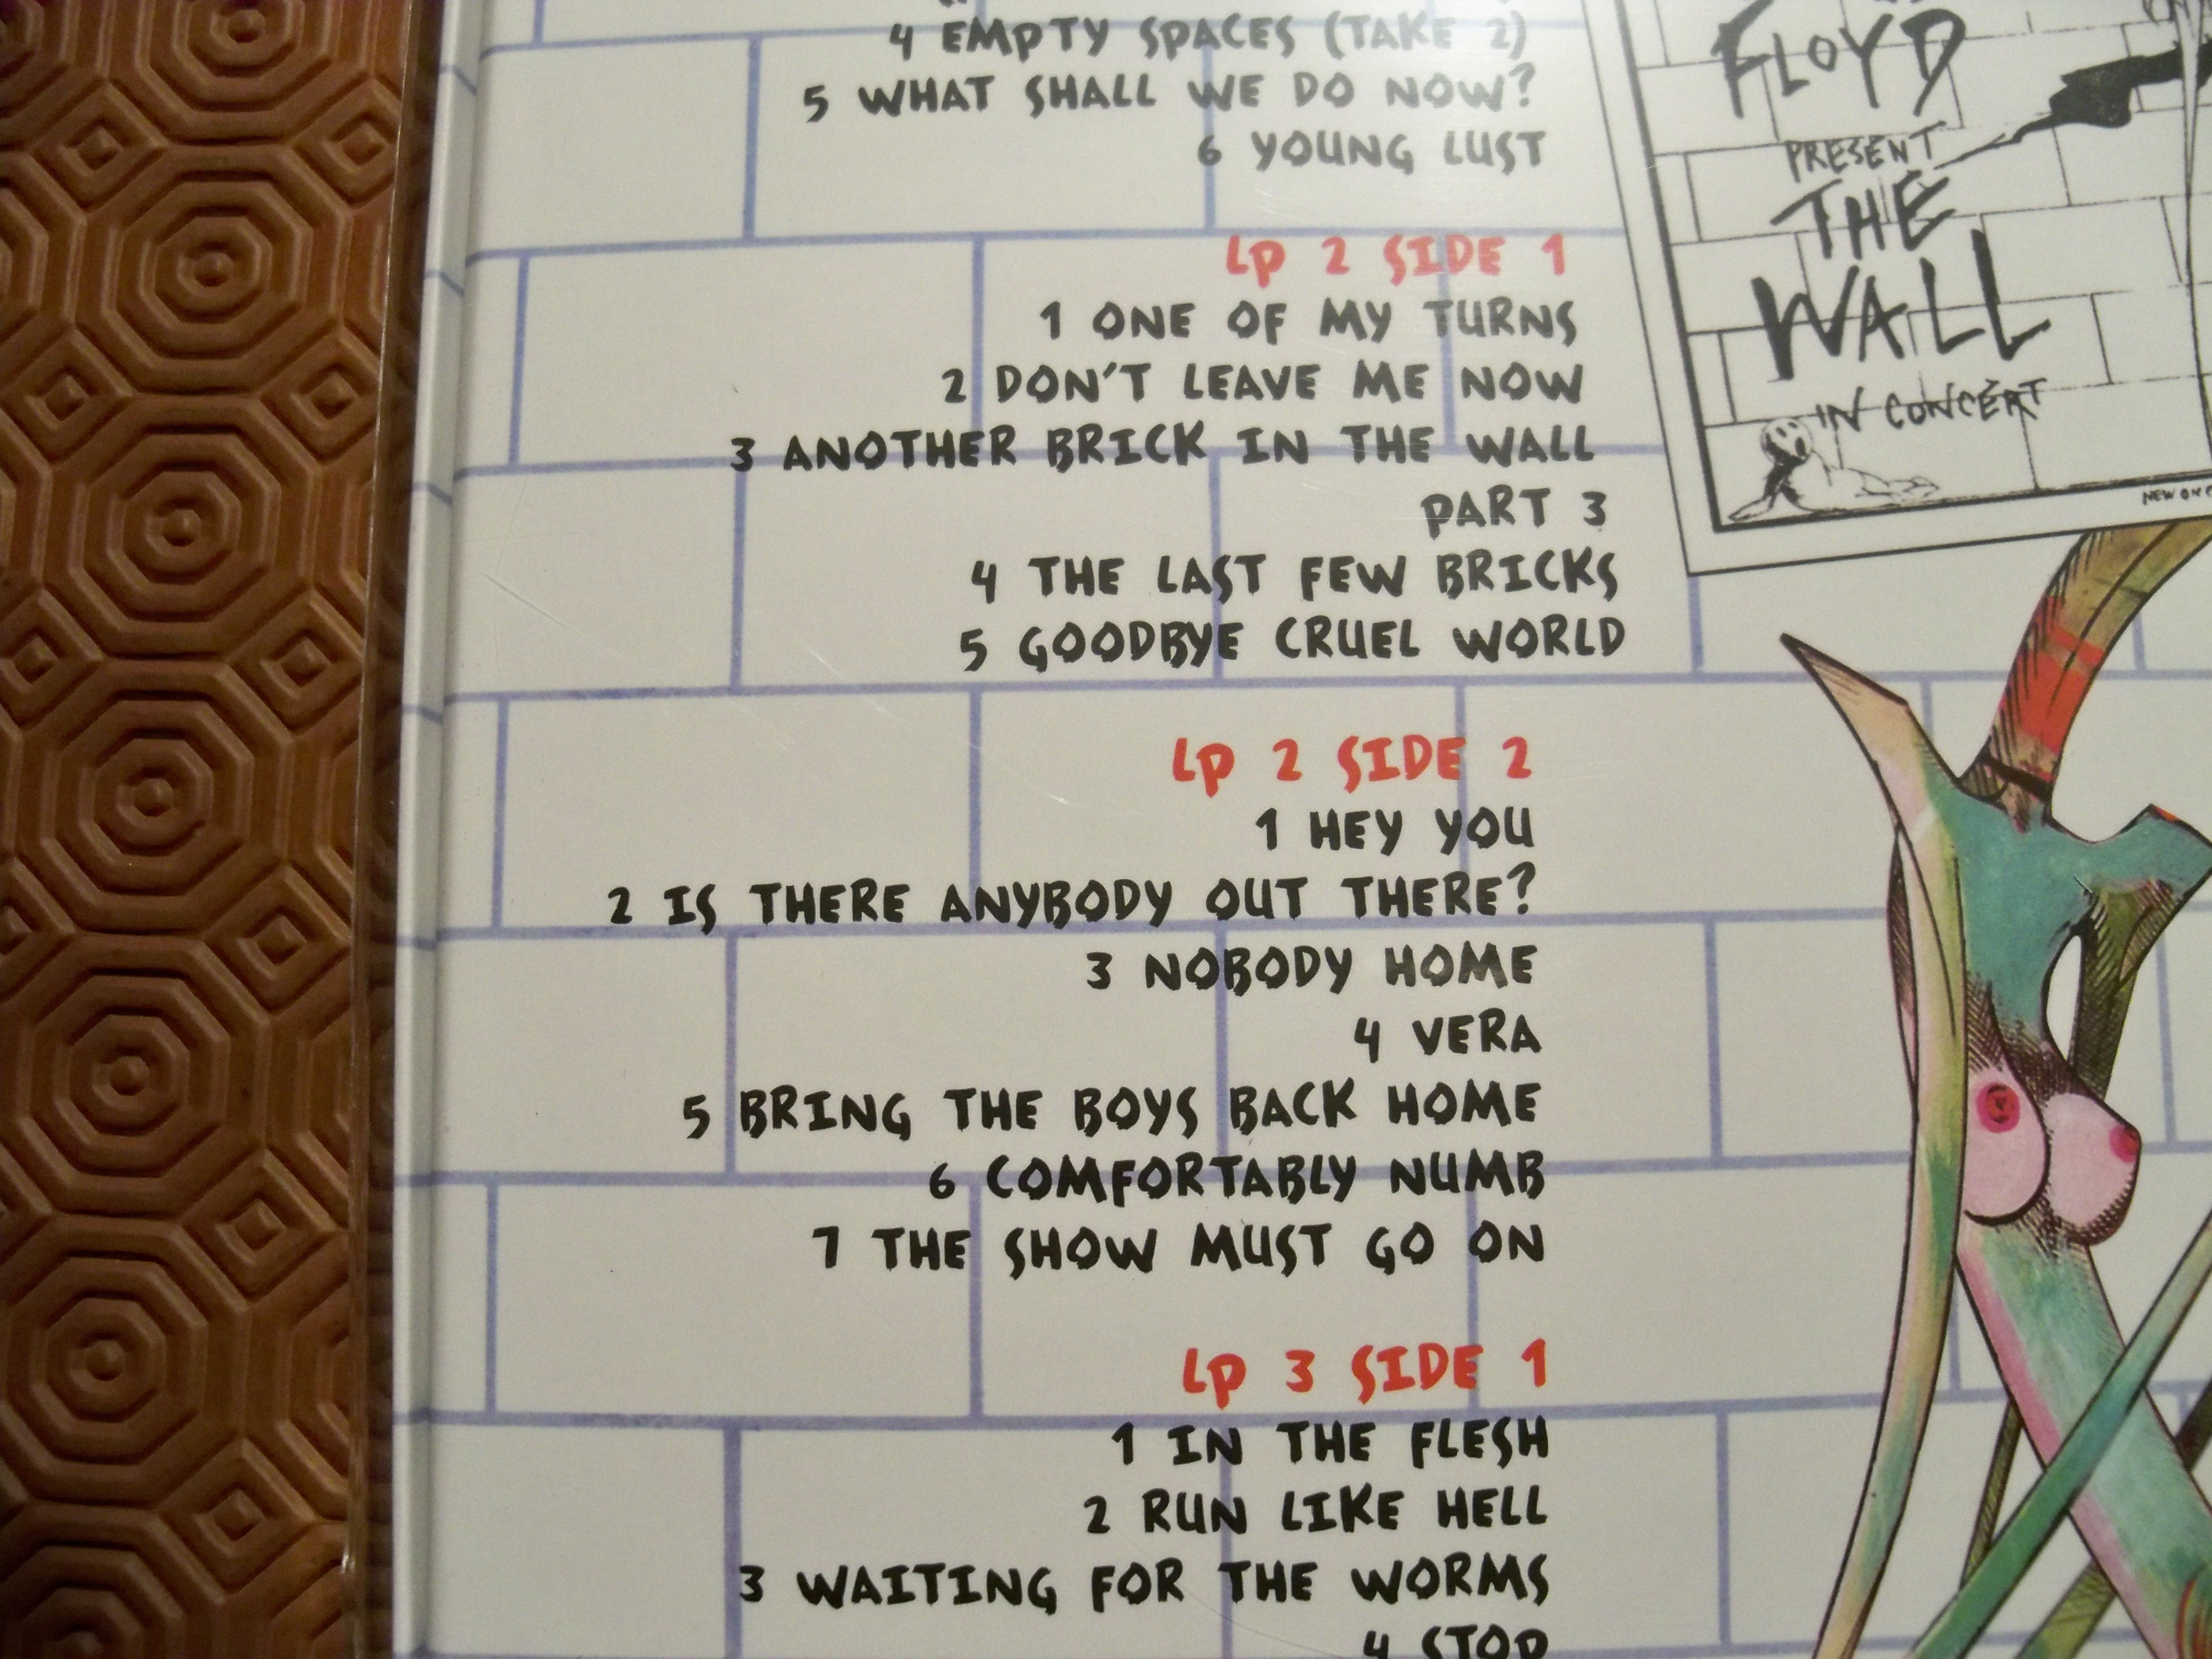 4 EMPTY SPACES (TAKE 2)
5 WHAT SHALL WE DO NOW?
6 YOUNG LUST
LP 2 SIDE 1
1 ONE OF MY TURNS
2 DON'T LEAVE ME NOW
3 ANOTHER BRICK IN THE WALL
PART 3
4 THE LAST FEW BRICKS
5 GOODBYE CRUEL WORLD
LP 2 SIDE 2
1 HEY YOU
2 IS THERE ANYBODY OUT THERE?
3 NOBODY HOME
4 VERA
5 BRING THE BOYS BACK HOME
6 COMFORTABLY NUMB
7 THE SHOW MUST GO ON
LP 3 SIDE 1
1 IN THE FLESH
2 RUN LIKE HELL
3 WAITING FOR THE WORMS
4 STOP
FLOYD
PRESENT
THE
WALL
IN CONCERT
NEW ON